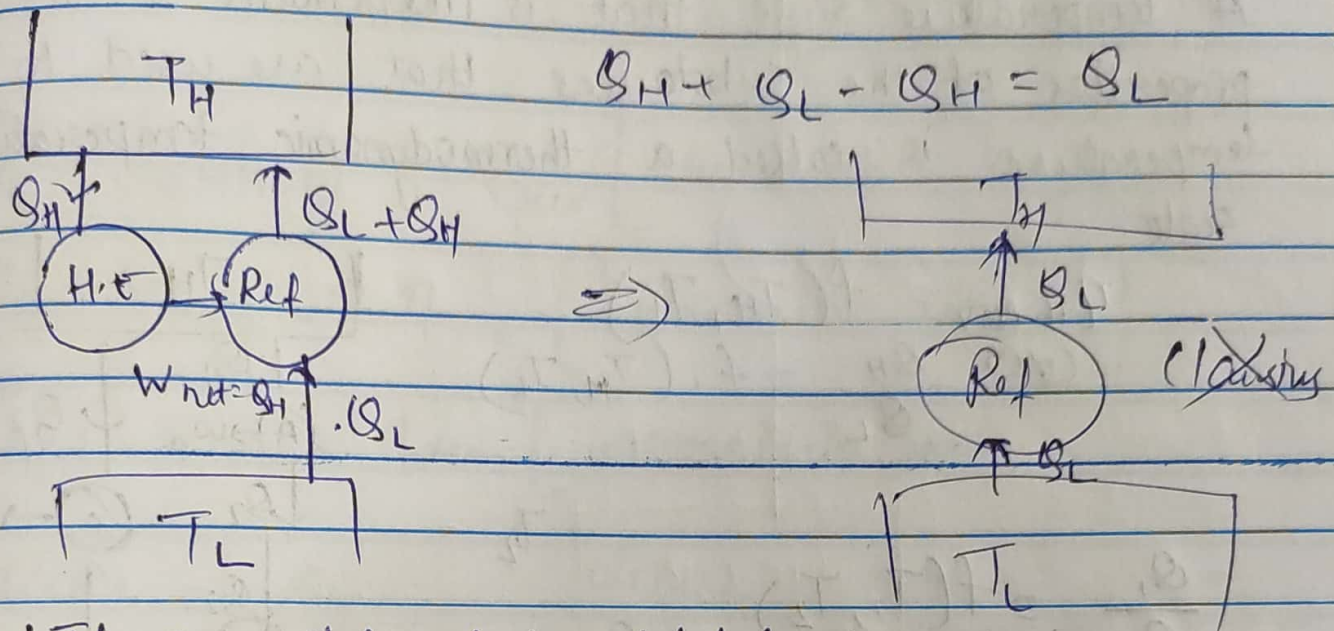 T_H
Q_H + Q_L - Q_H = Q_L
Q_H
Q_L + Q_H
H.E
Ref
W net = Q_H
Q_L
T_L
⇒
T_H
Q_L
Ref
Q_L
T_L